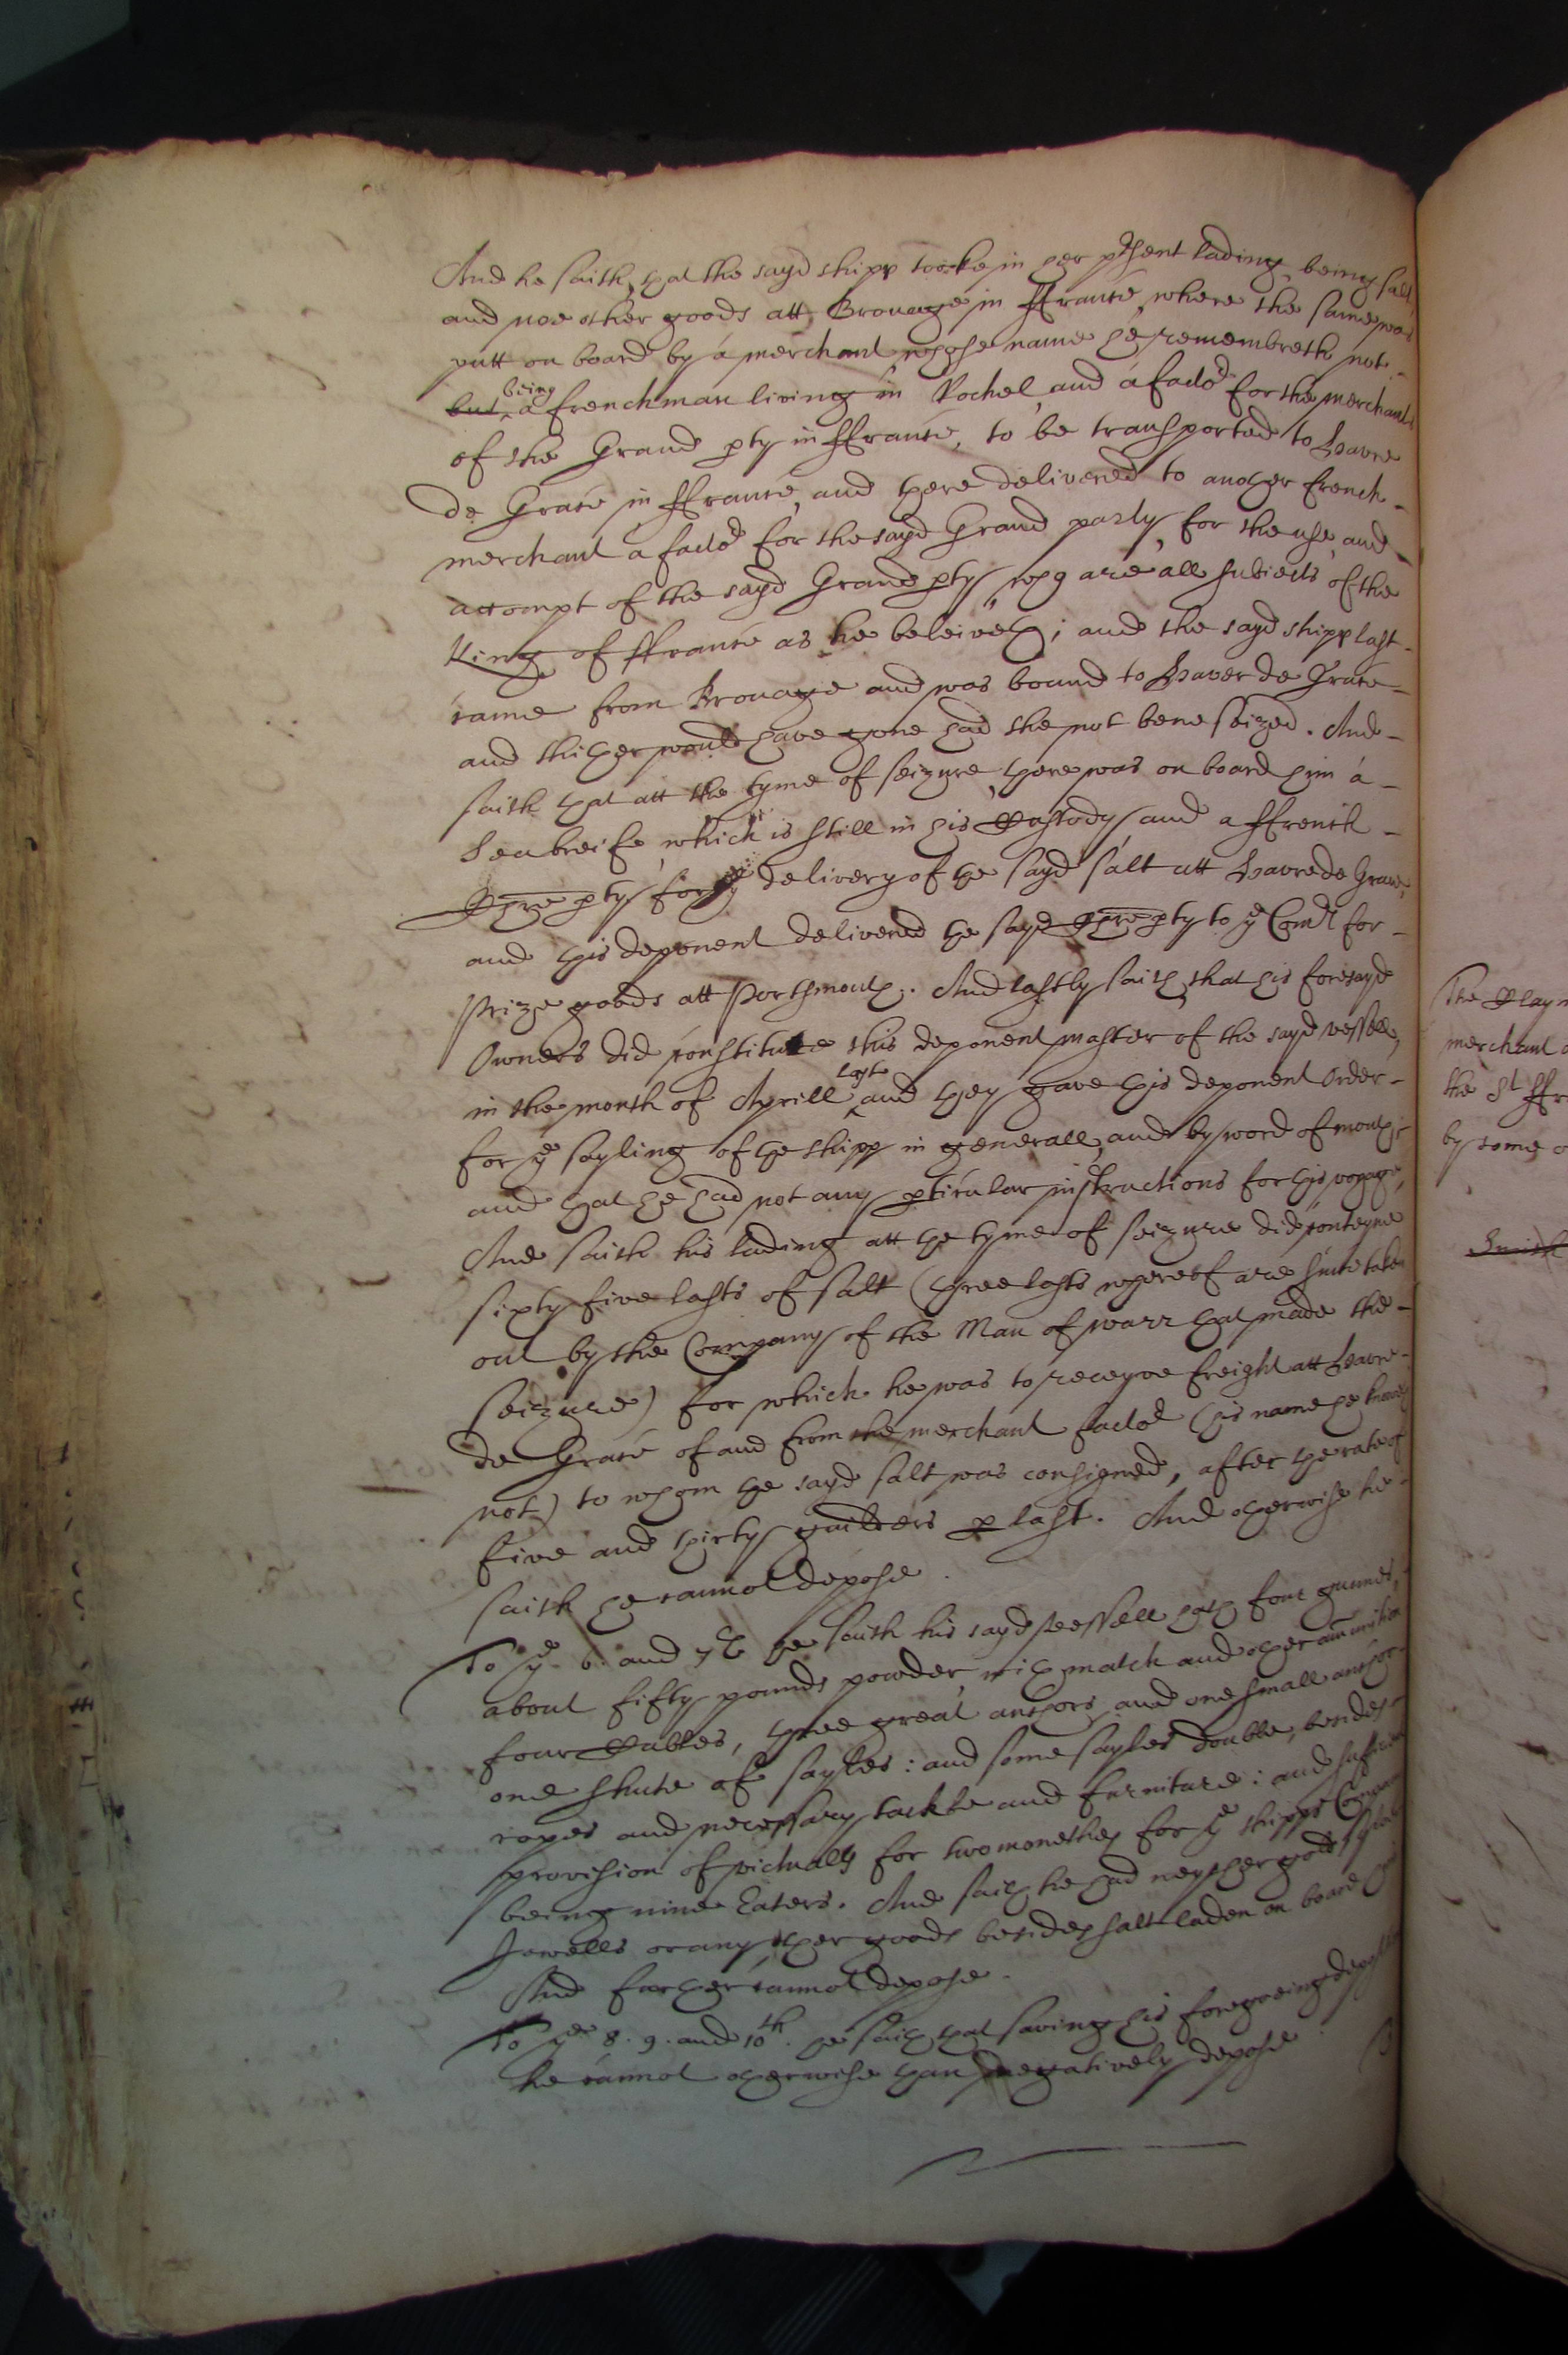 And he saith, that the sayd shipp tooke in her pñsent lading being salt
and noe other goods att Brouage in ffrance, where the same was
putt on board by a merchant whose name he remembreth not
but being a frenchman living in Rochel, and a facto^r for the merchants
of the Grand pty in ffrance, to be transported to Havre
de Grace in ffrance, and there delivered to another french
merchant a facto^r for the sayd Grand party, for the use and
accompt of the sayd Grand pty, who are all subiects of the
King of ffrance as he beleiveth; and the sayd shipp last
came from Brouage and was bound to Haver de Grace
and thither would have gone had she not bene seized. And
saith that att the tyme of seizure, there was on board him a
Seabreife, which is still in his Custody, and a ffrench
Chre pty for ye delivery of the sayd salt att Havre de Grace,
and this deponent delivered the sayd Chre pty to ye Com^rs for
Prize goods att Portsmouth. And lastly saith, that his foresayd
Owners did constitute this deponent master of the sayd vessell,
in the month of Aprill last and they gave this deponent Order
for ye sayling of the shipp in generall, and by word of mouth
and that he had not any pticular instructions for this voyage,
And saith his lading att the tyme of seizure did conteyne
sixty five lasts of salt (three lasts whereof are since taken
out by the Company of the Man of warr that made the
seizure) for which he was to receyve freight att Havre
de Grace of and from the merchant facto^r (his name he knows
not) to whom the sayd salt was consigned, after the rate of
five and thirty guilders p last. And otherwise he
saith he cannot depose.
To ye 6. and 7th he saith his sayd vessell hath four gunnes,
about fifty pounds powder with match and other amunition
four Cables, three great anchors and one small anchor
one shute of sayles: and some sayles double, besides
ropes and necessary tackle and furniture: and sufficient
provision of victualls for two monethes for ye shipps Company
being nine Eaters. And saith he had neyther gold silver
Jewells or any other goods besides salt laden on board
And further cannot depose.
To ye 8. 9. and 10th. he saith that saving his foregoeing deposition
he cannot otherwise than negatively depose
The Clay
merchant
the St ffr
by some
Smith